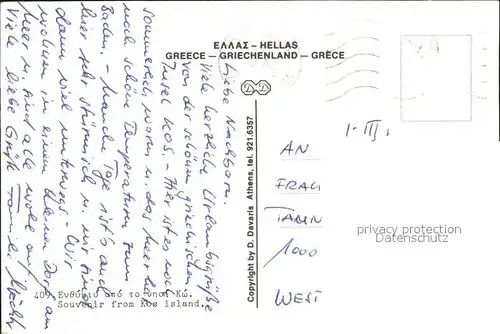 ΕΛΛΑΣ - HELLAS
GREECE - GRIECHENLAND - GRÈCE
Liebe Nachbarn.
Viele herzliche Urlaubsgrüße
von der schönen griechischen
Insel KOS. - Hier ist es noch
sommerlich warm u. das Meer hat
noch schöne Temperaturen zum
Baden. - Manche Tage ist's auch
hier sehr stürmisch u. wir sind
dann viel unterwegs. - Wir
wohnen in einem kleinen Dorf am
Meer u. sind alle wohl auf
Viele liebe Grüße Familie
Copyright by D. Davaris Athens, tel. 921.6357
AN
FRAU
1000
WEST
Privatsphäre /
Datenschutz -
409. Ενθύμιο από το νησί Κω.
Souvenir from Kos island.